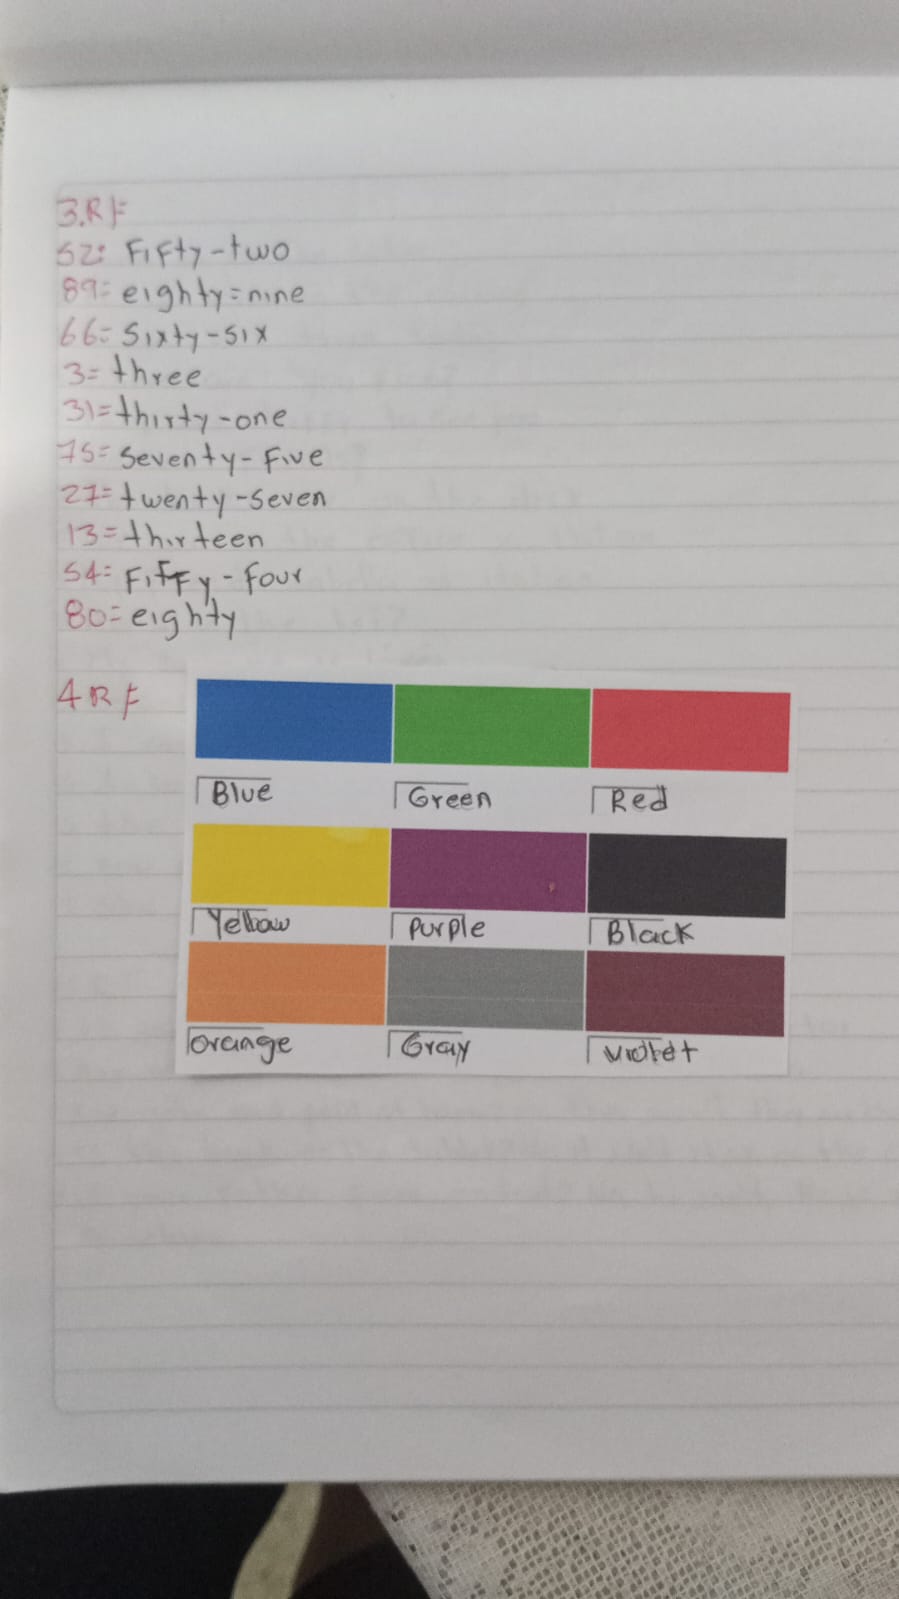 3.R⊧
52: Fifty-two
89= eighty=nine
66= Sixty-six
3= three
31= thirty-one
75= seventy-five
27= twenty-seven
13= thirteen
54= FiFFy-four
80= eighty
4 R ⊧
Blue Green Red
Yellow Purple Black
orange Gray violet